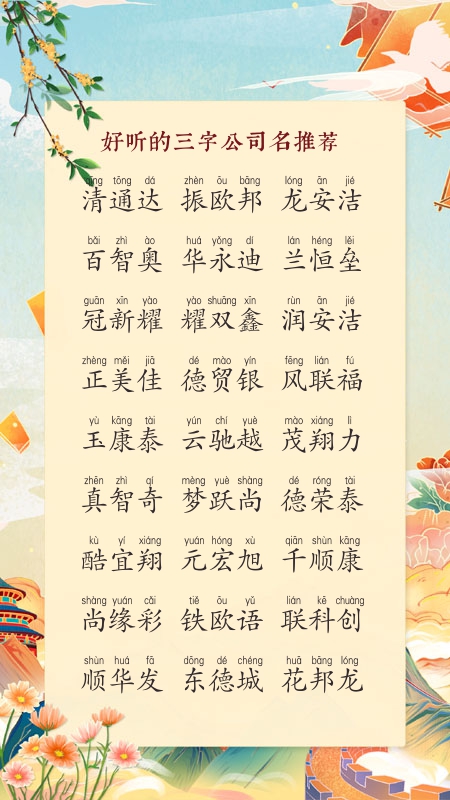 好听的三字公司名推荐
qīng tōng dá zhèn ōu bāng lóng ān jié
清通达 振欧邦 龙安洁
bǎi zhì ào huá yǒng dí lán héng lěi
百智奥 华永迪 兰恒垒
guān xīn yào yào shuāng xīn rùn ān jié
冠新耀 耀双鑫 润安洁
zhèng měi jiā dé mào yín fēng lián fú
正美佳 德贸银 风联福
yù kāng tài yún chí yuè mào xiáng lì
玉康泰 云驰越 茂翔力
zhēn zhì qí mèng yuè shàng dé róng tài
真智奇 梦跃尚 德荣泰
kù yí xiáng yuán hóng xù qiān shùn kāng
酷宜翔 元宏旭 千顺康
shàng yuán cǎi tiě ōu yǔ lián kē chuàng
尚缘彩 铁欧语 联科创
shùn huá fā dōng dé chéng huā bāng lóng
顺华发 东德城 花邦龙